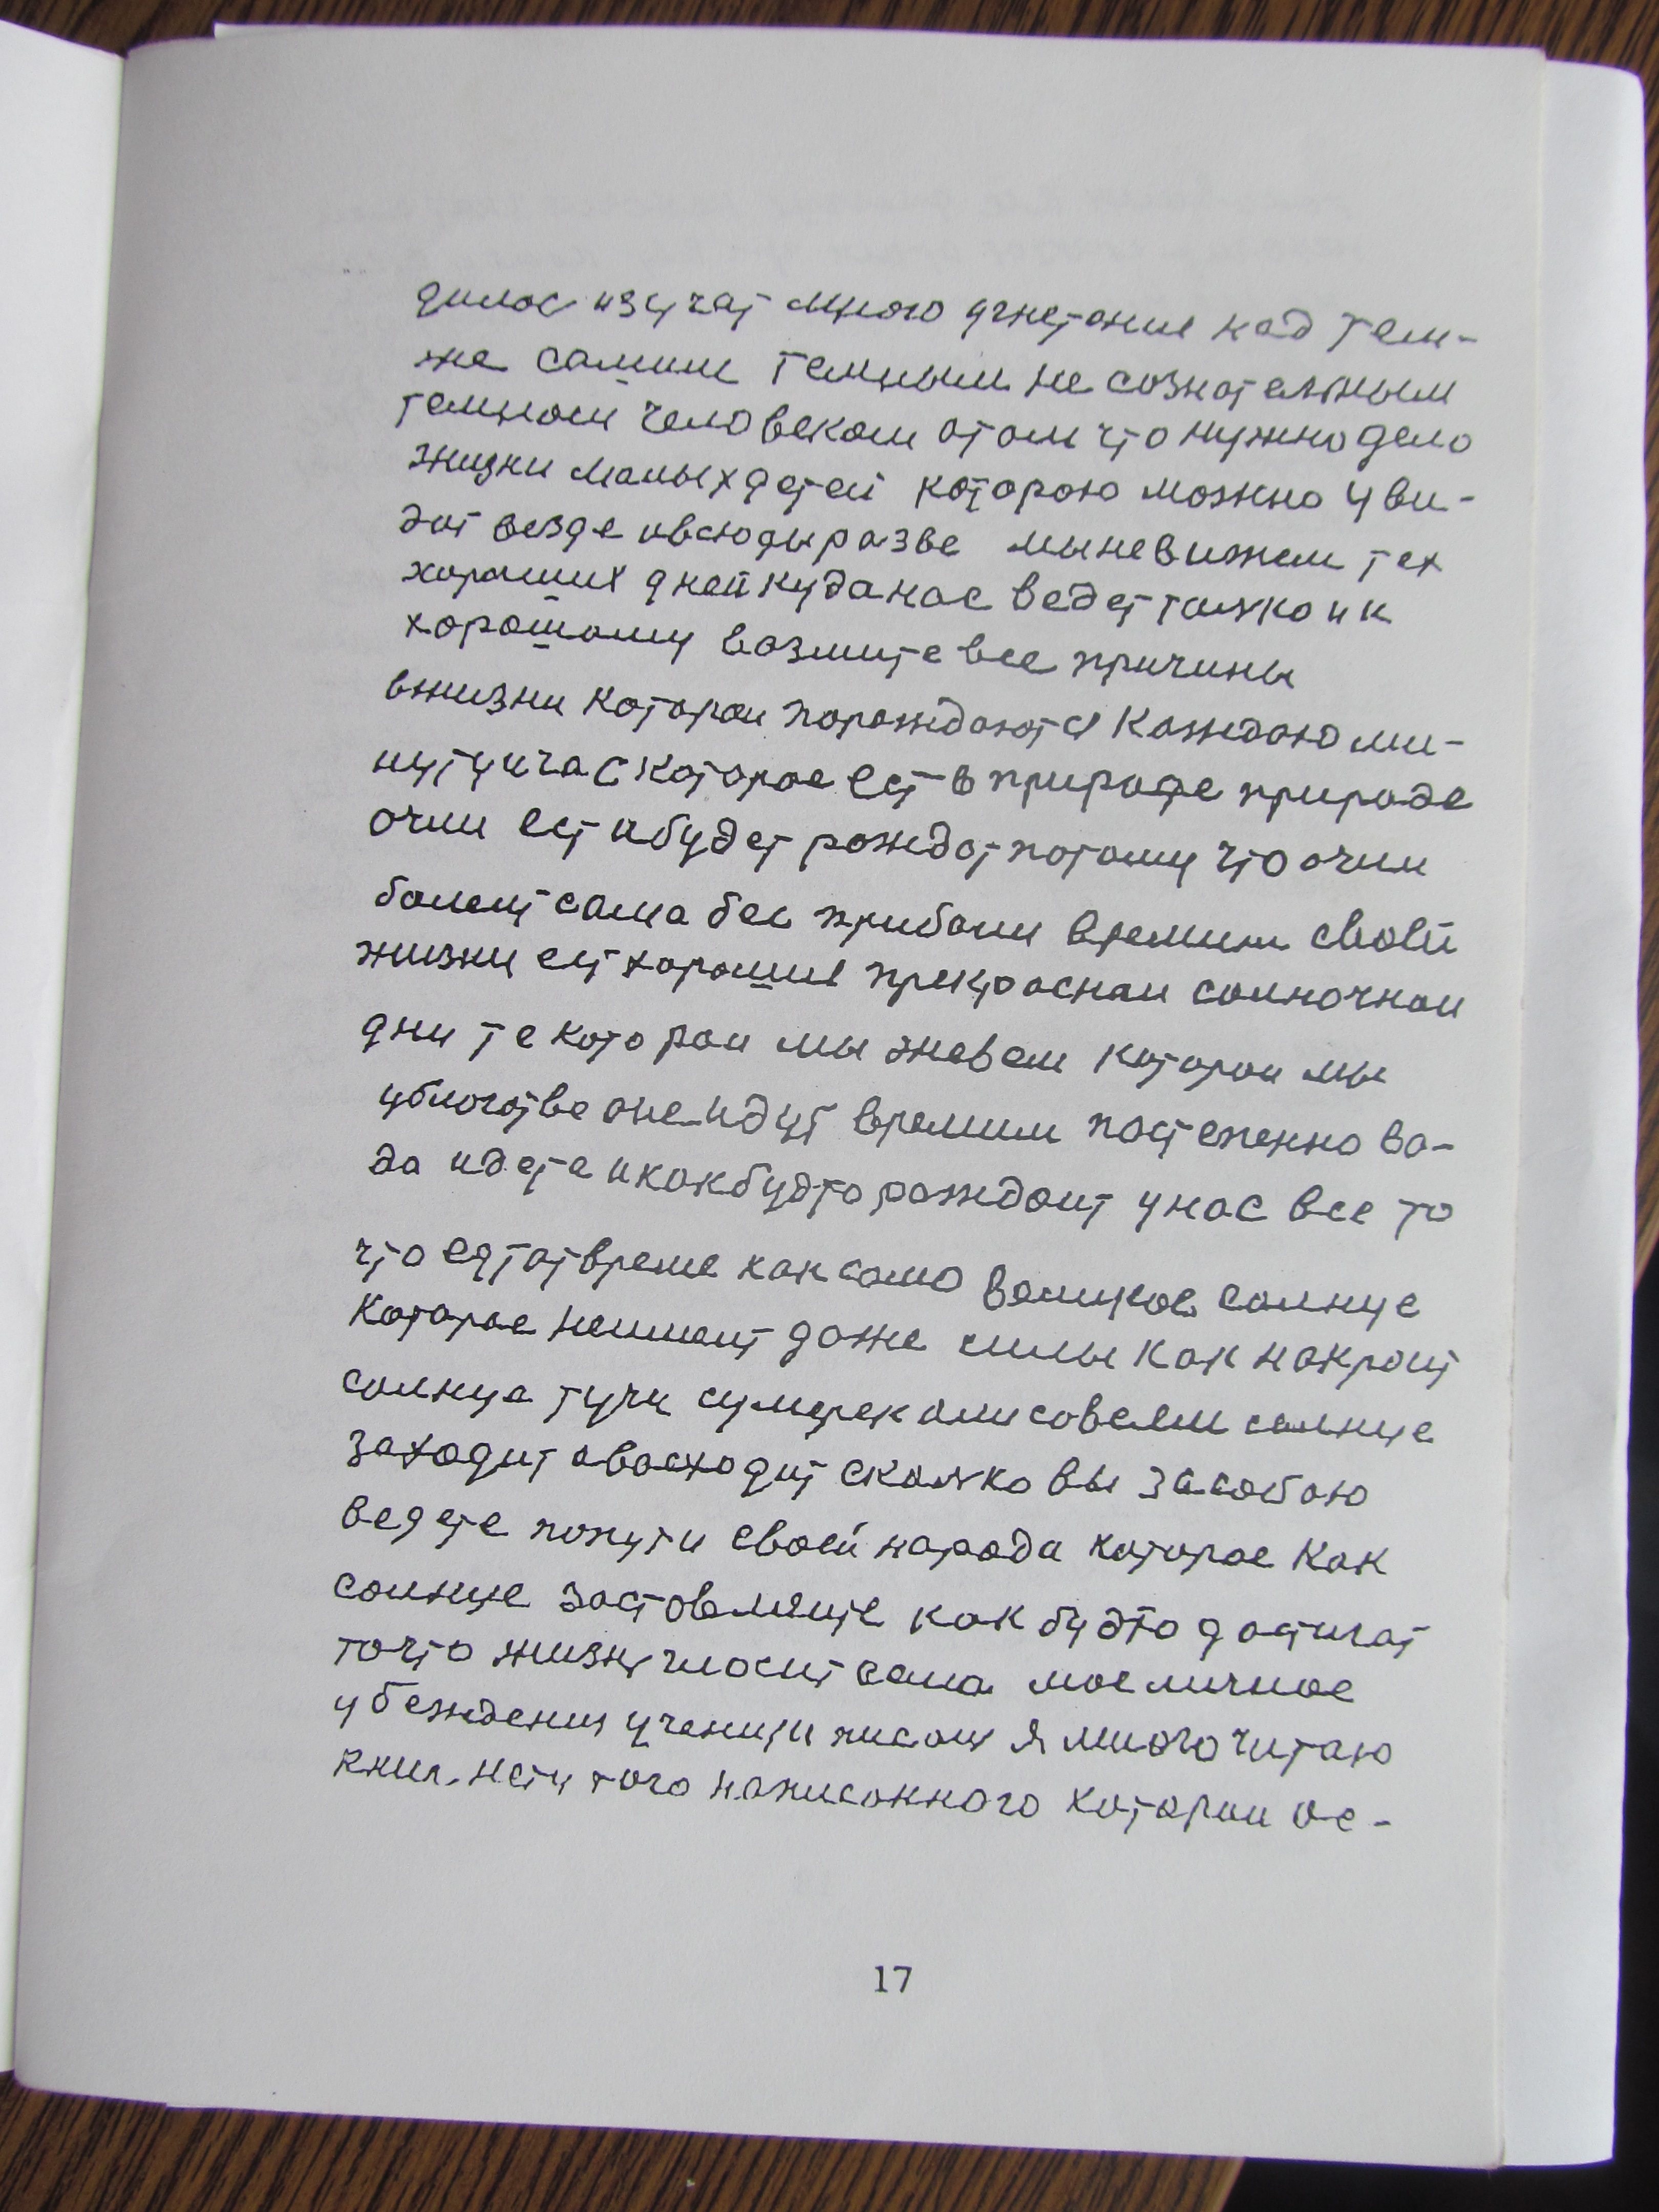 дилос изучат много угнетание над тем-
же самим темным не сознательным
темном человеком отом что нужно дело
жизни малых детей которою можно уви-
дат везде ивсюды разве мыневижем тех
хороших дней куданас ведет толко и к
хорошому возмите все причины
вжизни которои порождаются каждаю ми-
нутуичас которое ест в природе природе
очи ест ибудет рождат потому что очи
болеит сама бес прибочи времини своей
жизни ест хорошие прекраснаи солночнаи
дни те которои мы жевем которои мы
убогатве оне идут времини постепенно во-
да идете икакбудто рождаит унас все то
что ест тот време как само великое солнце
которое неимеит даже силы как накроит
солнца тучи сумереками совсем солнце
заходит авосходит сколко вы засобою
ведете попути своей народа которое как
солнце заставляите как будто достигат
точто жизн гласит сама мое личное
убеждения учениии писат я много читаю
книг нету того написанного которои ос-
17